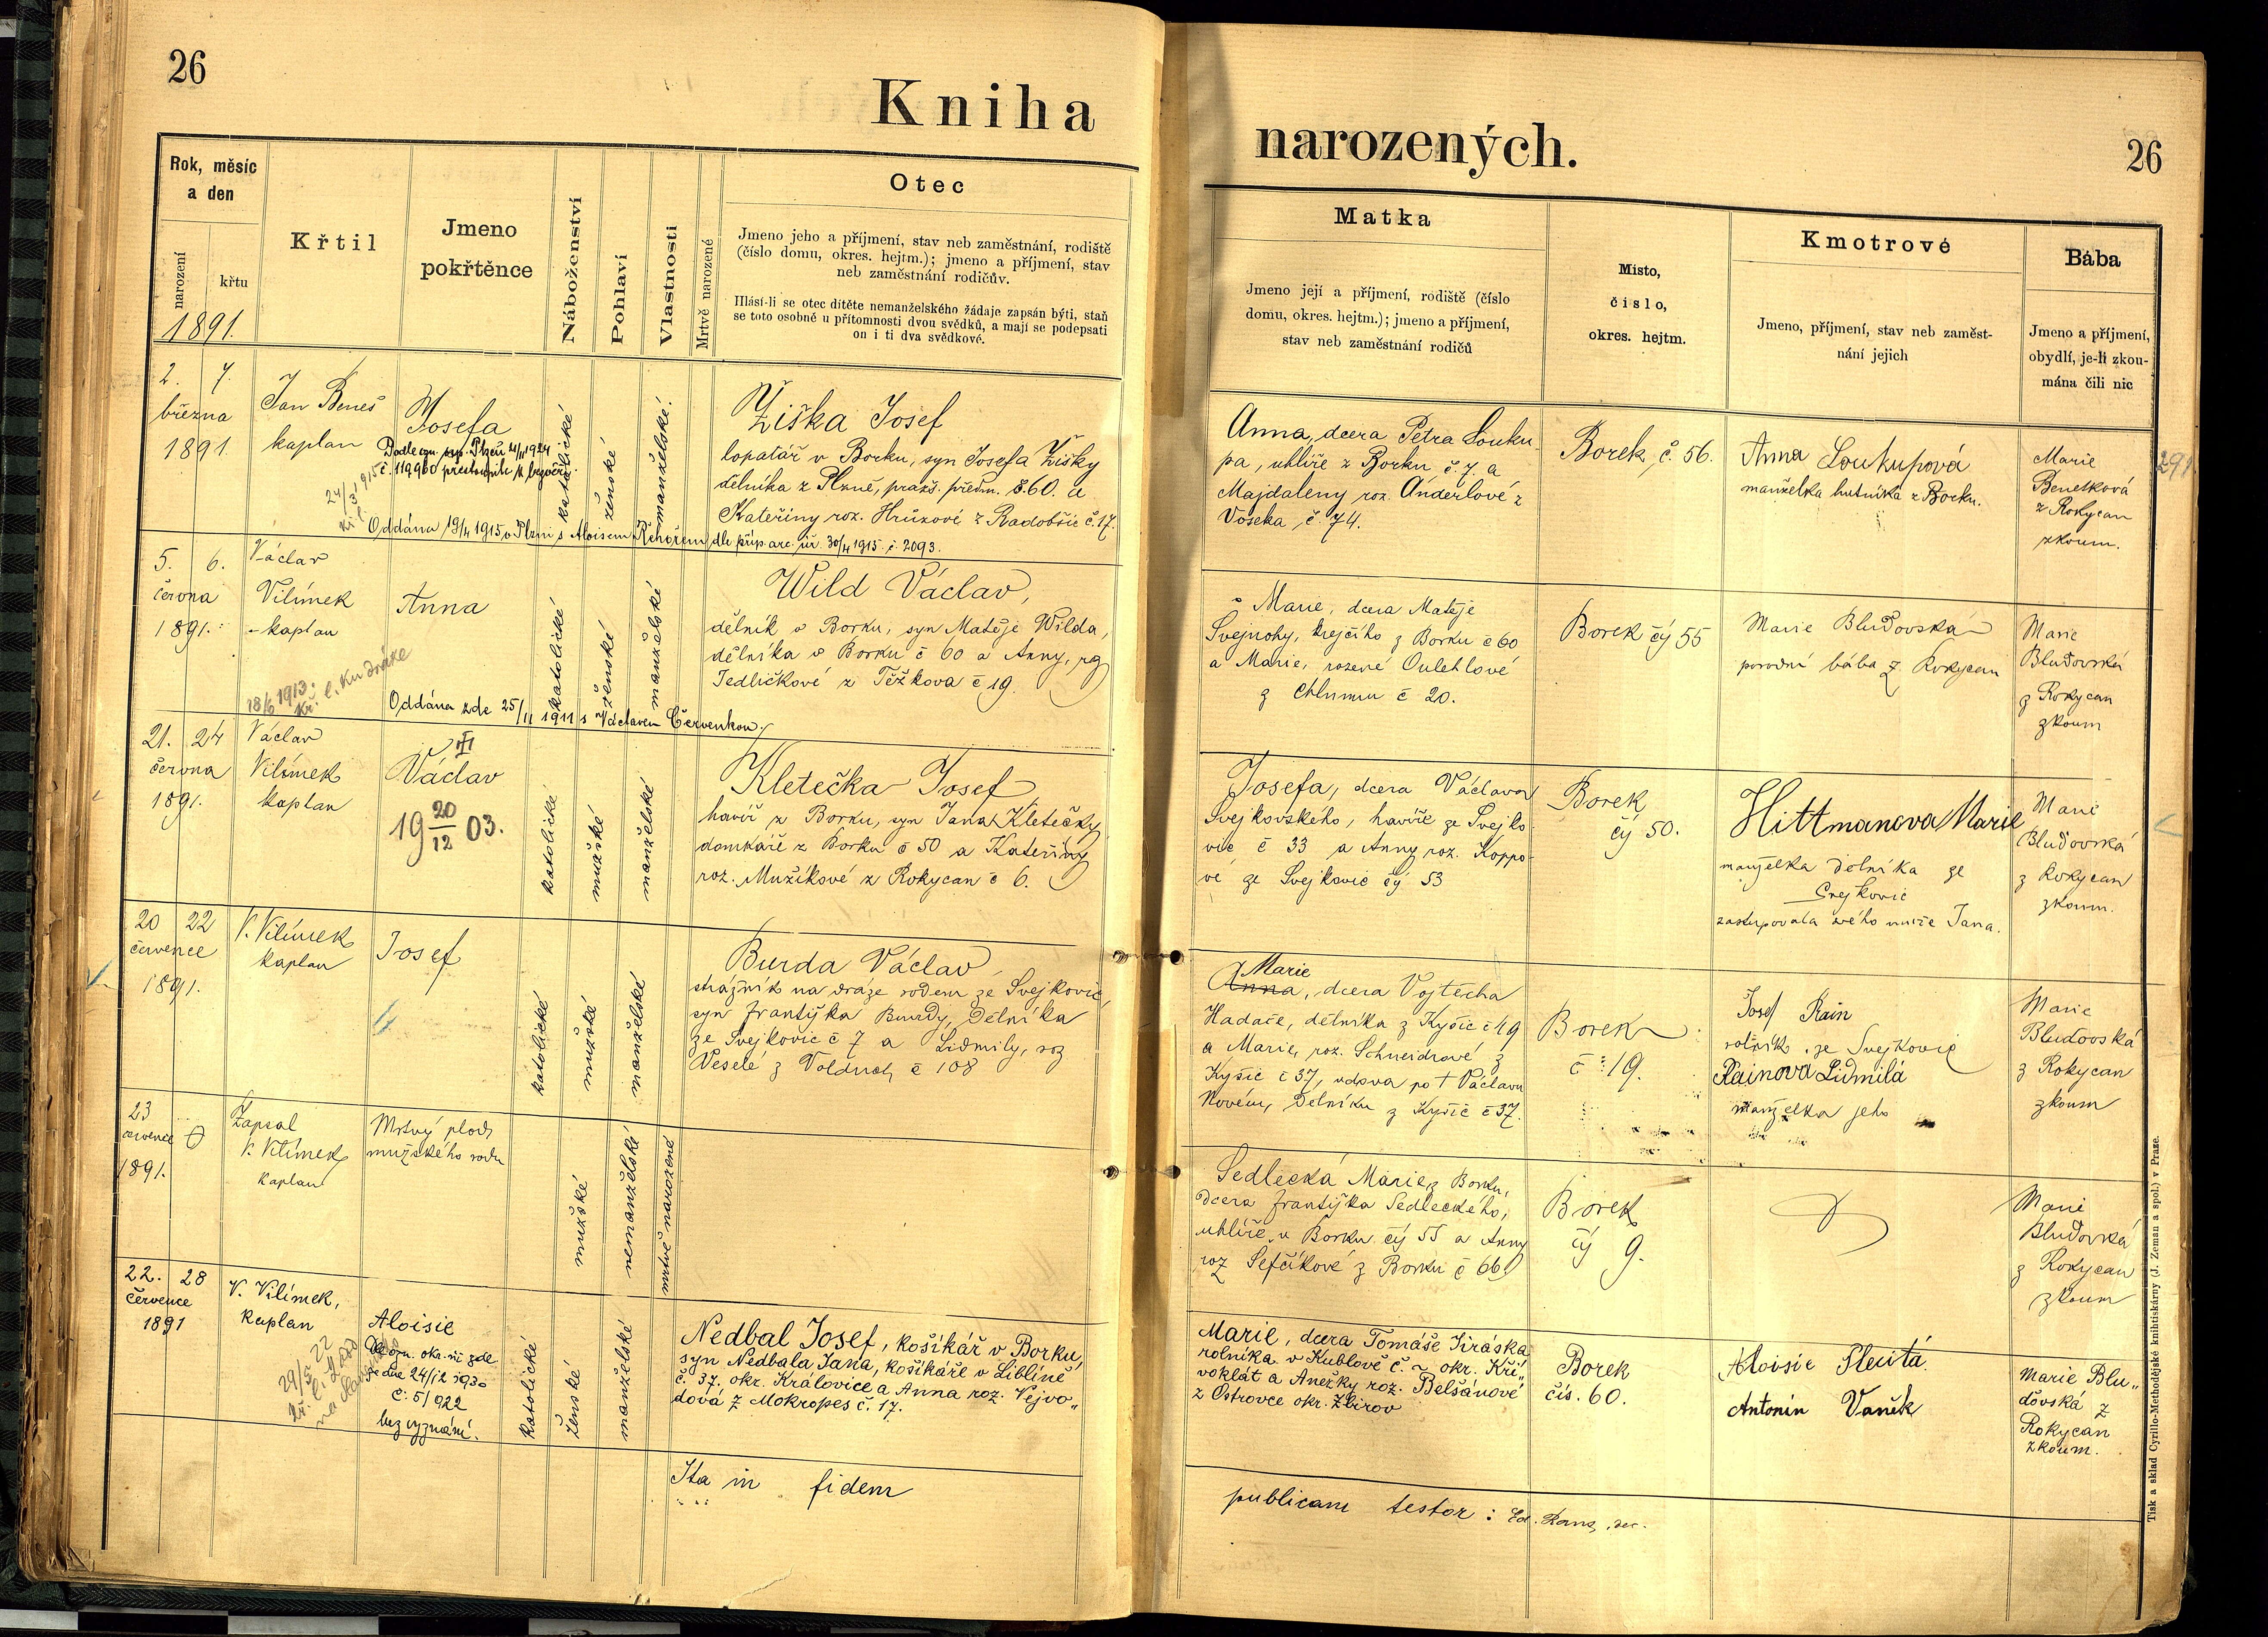 26
Kniha
narozených.
26
Rok, měsíc
a den
narození
křtu
1891.
Křtil
Jmeno
pokřtěnce
Náboženství
Pohlaví
Vlastnosti
Mrtvě narozené
Otec
Jmeno jeho a příjmení, stav neb zaměstnání, rodiště
(číslo domu, okres. hejtm.); jmeno a příjmení, stav
neb zaměstnání rodičův.
Hlásí-li se otec dítěte nemanželského žádaje zapsán býti, staň
se toto osobně u přítomnosti dvou svědků, a mají se podepsati
on i ti dva svědkové.
Matka
Jmeno její a příjmení, rodiště (číslo
domu, okres. hejtm.); jmeno a příjmení,
stav neb zaměstnání rodičů
Místo,
číslo,
okres. hejtm.
Kmotrové
Jmeno, příjmení, stav neb zaměst-
nání jejich
Bába
Jmeno a příjmení,
obydlí, je-li zkou-
mána čili nic
2. 7.
března
1891.
Jan Beneš
kaplan
Josefa
č. 119960
24/3 1915
katolické
ženské
manželské.
Žiška Josef
lopatář v Borku, syn Josefa Žišky
dělníka z Plzně, praž. předm. č. 60. a
Kateřiny roz. Hrůzové z Radobšic č. 17.
Oddána 19/4 1915 v Plzni s Aloisem Řehořem dle příp. arc. úř. 30/4 1915 č. 2093.
Anna, dcera Petra Louku
pa, uhlíře z Borku č. 7. a
Majdaleny roz. Anderlové z
Voseka, č. 74.
Borek, č. 56.
Anna Loukupová
manželka hutníka z Borku.
Marie
Benešková
z Rokycan
zkoum.
291
5. 6.
června
1891.
Václav
Vilímek
kaplan
18/6 1913.
Anna
katolické
ženské
manželské
Wild Václav,
dělník v Borku, syn Matěje Wilda,
dělníka v Borku č 60 a Anny, roz
Jedličkové z Těžkova č 19.
Oddána zde 25/11 1911 s Václavem Červenkou.
Marie, dcera Matěje
Švejnohy, krejčího z Borku č 60
a Marie, rozené Oulehlové
z Chlumu č 20.
Borek čís 55
Marie Bluďovská
porodní bába z Rokycan
Marie
Bluďovská
z Rokycan
zkoum
21. 24
června
1891.
Václav
Vilímek
kaplan
Václav
19 20/12 03.
katolické
mužské
manželské
Kletečka Josef,
havíř z Borku, syn Jana Kletečky
domkáře z Borku č 50 a Kateřiny
roz. Mužíkové z Rokycan č 6.
Josefa, dcera Václava
Svejkovského, havíře ze Svejko
vic č 33 a Anny roz. Koppo-
vé ze Svejkovic čís 53
Borek
čís 50.
Hittmanova Marie
manželka dělníka ze
Svejkovic
zastupovala svého muže Jana.
Marie
Bluďovská
z Rokycan
zkoum.
20 22
července
1891.
V. Vilímek
kaplan
Josef
katolické
mužské
manželské
Burda Václav
strážník na dráze rodem ze Svejkovic,
syn Františka Burdy, dělníka
ze Svejkovic č 7 a Lidmily, roz
Veselé z Volduch č 108
Marie
Anna, dcera Vojtěcha
Hadače, dělníka z Kyšic č 49
a Marie, roz. Schneidrové z
Kyšic č 37, vdova po † Václavu
Novém, dělníku z Kyšic č 37.
Borek
č 19.
Josef Rain
rolník ze Svejkovic
Rainova Lidmila
manželka jeho
Marie
Bluďovská
z Rokycan
zkoum
23
července
1891.
Zapsal
V. Vilímek
kaplan
Mrtvý plod
mužského rodu
mužské
nemanželské
mrtvě narozené
Sedlecká Marie z Borku,
dcera Františka Sedleckého,
uhlíře v Borku čís 55 a Anny
roz Šefčíkové z Borku č 66.
Borek
čís 9.
Marie
Bluďovská
z Rokycan
zkoum
22. 28
července
1891
V. Vilímek,
kaplan
29/5 22
Aloisie
ze dne 24/12 1930
č. 51922
bez vyznání.
katolické
ženské
manželské
Nedbal Josef, košíkář v Borku,
syn Nedbala Jana, košíkáře v Liblíně
č. 37. okr. Kralovice a Anna roz. Vejvo„
dová z Mokropes č. 17.
Marie, dcera Tomáše Jiráska
rolníka v Kublově č. ~ okr. Kři„
voklát a Anežky roz. Belšánové
z Ostrovce okr. Zbirov
Borek
čís. 60.
Aloisie Plecitá.
Antonín Vaněk
Marie Blu„
ďovská z
Rokycan
zkoum.
Ita in fidem
publicam testor:
Tisk a sklad Cyrillo-Methodějské knihtiskárny (J. Zeman a spol.) v Praze.